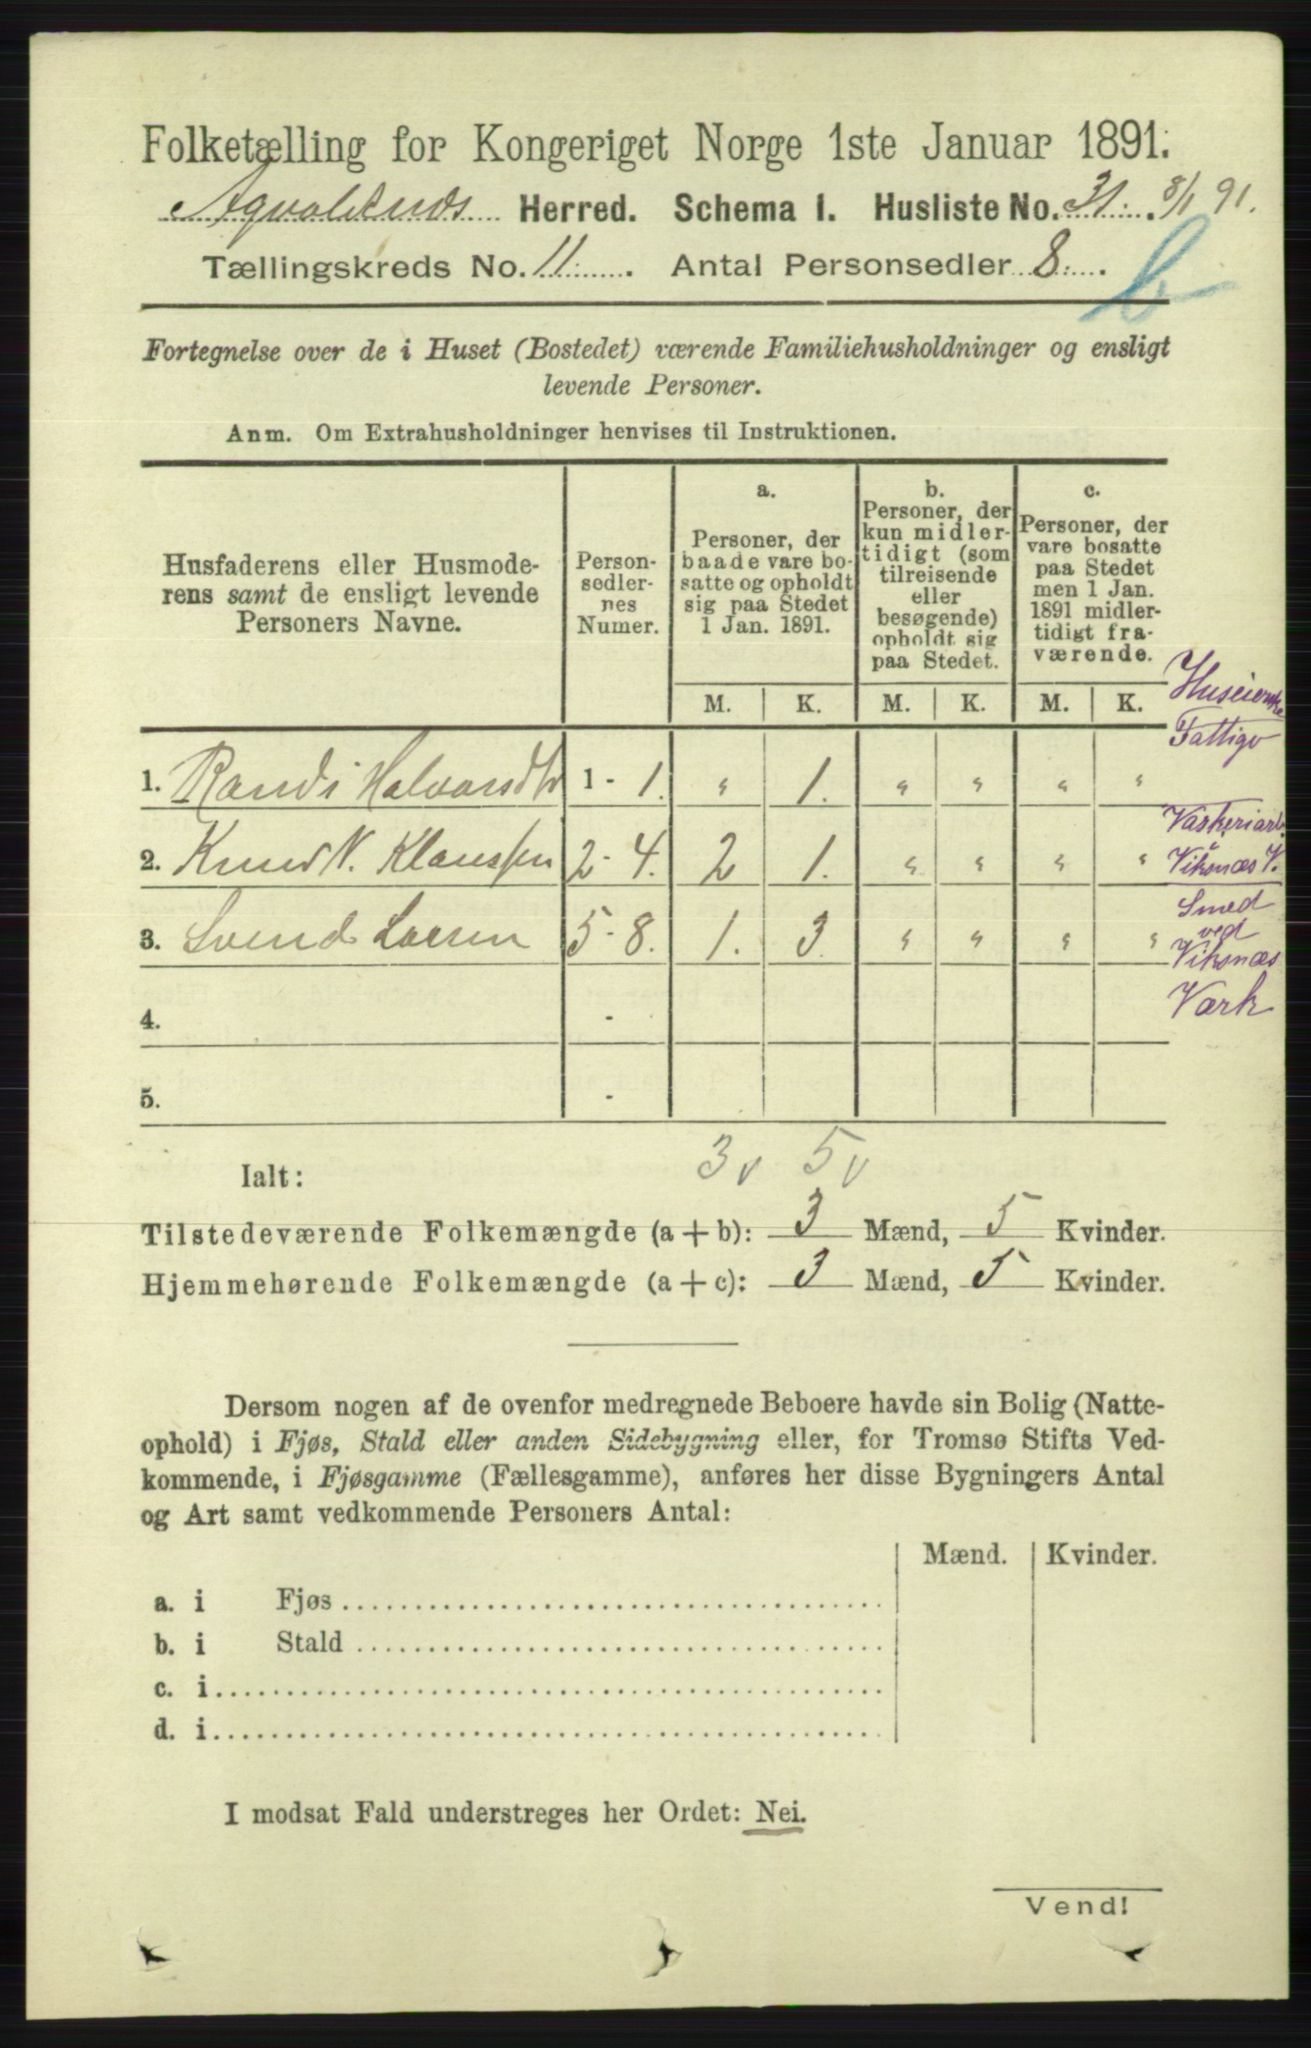 Folketælling for Kongeriget Norge 1ste Januar 1891.
Herred. Schema I. Husliste No. 31. 8/1 91.
Tællingskreds No. 11. Antal Personsedler 8.
b
Fortegnelse over de i Huset (Bostedet) værende Familiehusholdninger og ensligt
levende Personer.
Anm. Om Extrahusholdninger henvises til Instruktionen.
Husfaderens eller Husmode-
rens samt de ensligt levende
Personers Navne.
Person-
sedler-
nes
Numer.
a.
Personer, der
baade vare bo-
satte og opholdt
sig paa Stedet
1 Jan. 1891.
b.
Personer, der
kun midler-
tidigt (som
tilreisende
eller
besøgende)
opholdt sig
paa Stedet.
c.
Personer, der
vare bosatte
paa Stedet
men 1 Jan.
1891 midler-
tidigt fra-
værende.
M. K. M. K. M. K.
Huseierske
Fattigv
1. Randi Halvorsdtr 1 - 1. " 1. " " " "
Vaskeriarb.
2. Knud N. Klaussen 2 - 4. 2 1. " " " " Viksnæs V.
3. Svend Larsen 5 - 8. 1. 3. " " " "
Smed
ved
Viksnæs
Værk
4. -
5. -
3 v 5 v
Ialt:
Tilstedeværende Folkemængde (a + b): 3 Mænd, 5 Kvinder.
Hjemmehørende Folkemængde (a + c): 3 Mænd, 5 Kvinder.
Dersom nogen af de ovenfor medregnede Beboere havde sin Bolig (Natte-
ophold) i Fjøs, Stald eller anden Sidebygning eller, for Tromsø Stifts Ved-
kommende, i Fjøsgamme (Fællesgamme), anføres her disse Bygningers Antal
og Art samt vedkommende Personers Antal:
Mænd. Kvinder.
a. i Fjøs
b. i Stald
c. i
d. i
I modsat Fald understreges her Ordet: Nei.
Vend!